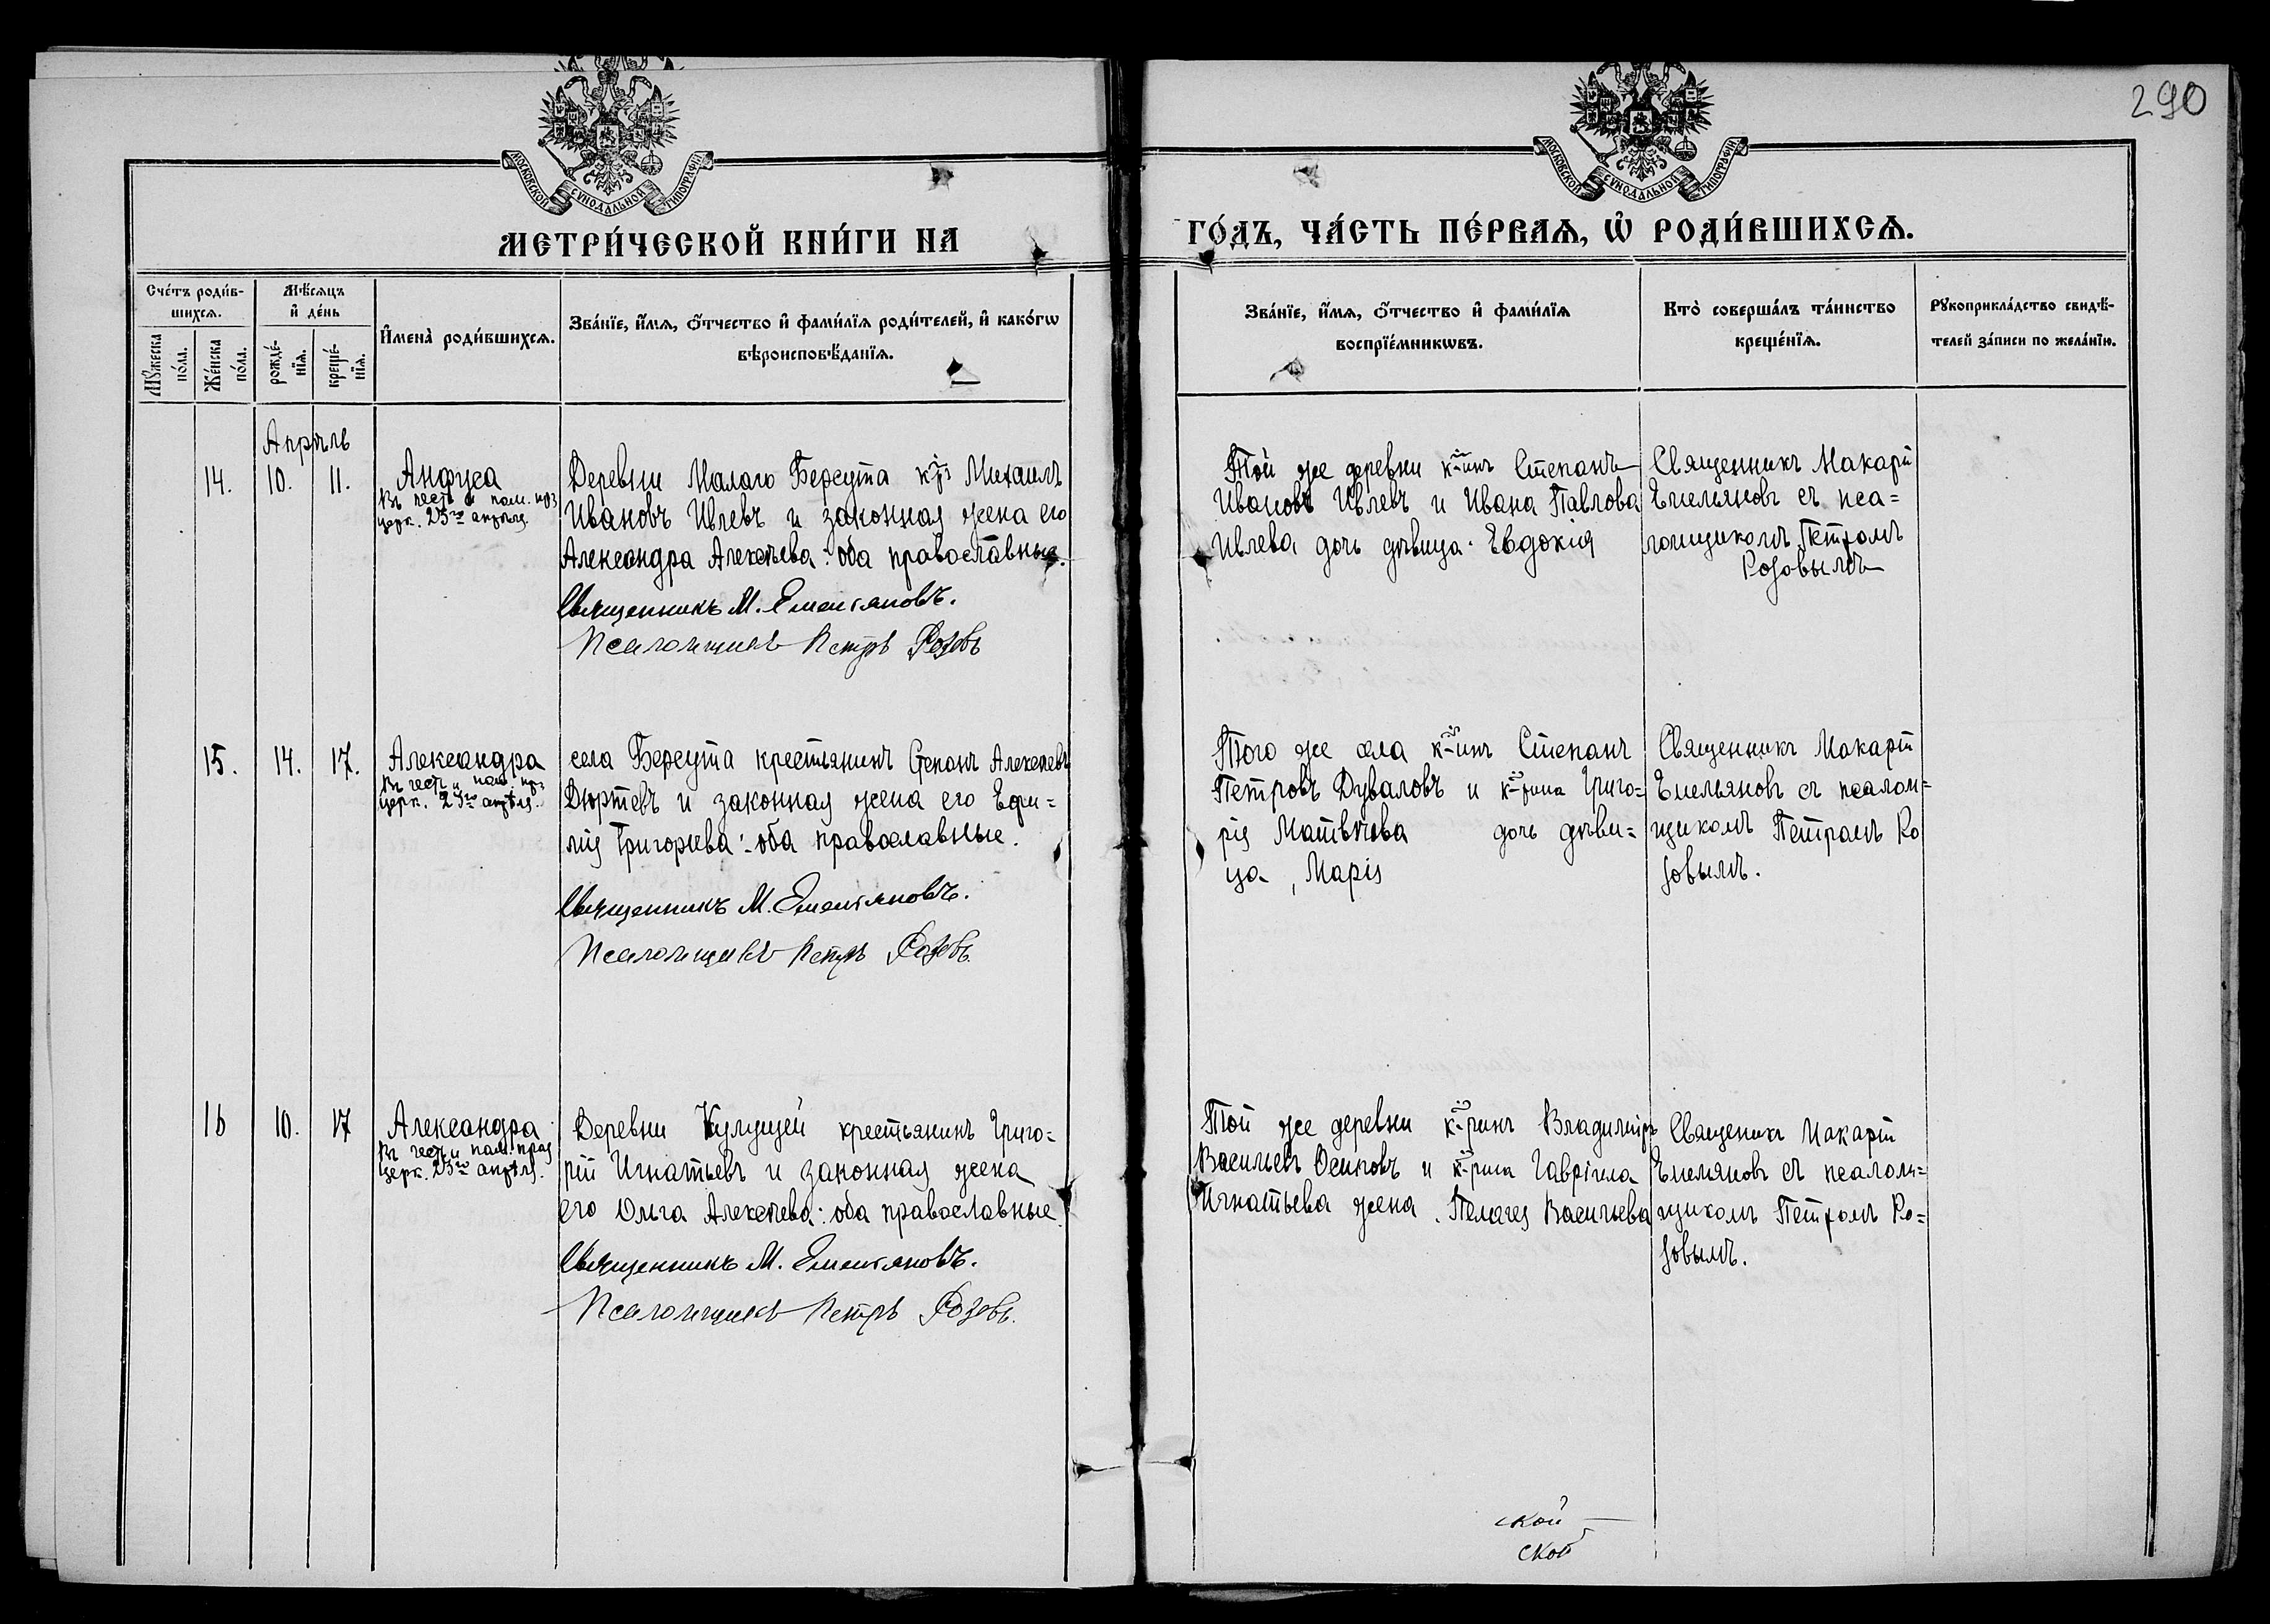 290
МОСКОВСКОЙ СУНОДАЛЬНОЙ ТИПОГРАФІИ
МОСКОВСКОЙ СУНОДАЛЬНОЙ ТИПОГРАФІИ
МЕТРИ́ЧЕСКОЙ КНИ́ГИ НА
ГО́ДЪ, ЧА́СТЬ ПЕ́РВАѦ, Ѡ҆ РОДИ́ВШИХСѦ.
Сче́тъ роди́в-
шихсѧ.
Мꙋ́жеска
по́ла.
Же́нска
по́ла.
Мѣ́сѧцъ
и҆ де́нь
рожде́-
нїѧ.
креще́-
нїѧ.
И҆мена̀ роди́вшихсѧ.
Зва́нїе, и҆́мѧ, ѻ҆́тчество и҆ фами́лїѧ роди́телей, и҆ како́гѡ
вѣроисповѣ́данїѧ.
Зва́нїе, и҆́мѧ, ѻ҆́тчество и҆ фами́лїѧ
воспрїе́мникѡвъ.
Кто̀ соверша́лъ та́инство
креще́нїѧ.
Рꙋкоприкла́дство свидѣ́-
телей за́писи по жела́нїю.
Апрѣль
14. 10. 11.
Анфуса
Въ честь и пам. праз
церк. 23го апрѣля.
Деревни Малаго Берсута Михаилъ
Ивановъ Ивлевъ и законная жена его
Александра Алексѣева: оба православные.
Священникъ М. Емельяновъ.
Псаломщикъ Петръ Розовъ
Той же деревни к-инъ Степанъ
Ивановъ Ивлевъ и Ивана Павлова
Ивлева дочь дѣвица Евдокія
Священникъ Макарій
Емельяновъ съ пса=
ломщикомъ Петромъ
Розовымъ
15. 14. 17.
Александра
Въ честь и пам. пр.
церк. 23го апрѣля.
села Берсута крестьянинъ Степанъ Алексѣевъ
Дюртевъ и законная жена его Ефи=
мія Григорьева: оба православные.
Священникъ М. Емельяновъ.
Псаломщикъ Петръ Розовъ.
Того же села к-инъ Степанъ
Петровъ Дуваловъ и Григо=
рія Матвѣева дочь дѣви=
ца, Марія
Священникъ Макарій
Емельяновъ съ псалом=
щикомъ Петромъ Ро
зовымъ.
16 10. 17
Александра
Въ честь и пам. праз
церк. 23го апрѣля.
Деревни Кулущей крестьянинъ Григо=
рій Игнатьевъ и законная жена
его Ольга Алексѣева: оба православные.
Священникъ М. Емельяновъ.
Псаломщикъ Петръ Розовъ.
Той же деревни Владиміръ
Васильевъ Осиповъ и Гавріила
Игнатьева жена Пелагея Васильева
Священикъ Макарій
Емельяновъ съ псалом=
щикомъ Петромъ Ро=
зовымъ.
ской
ской